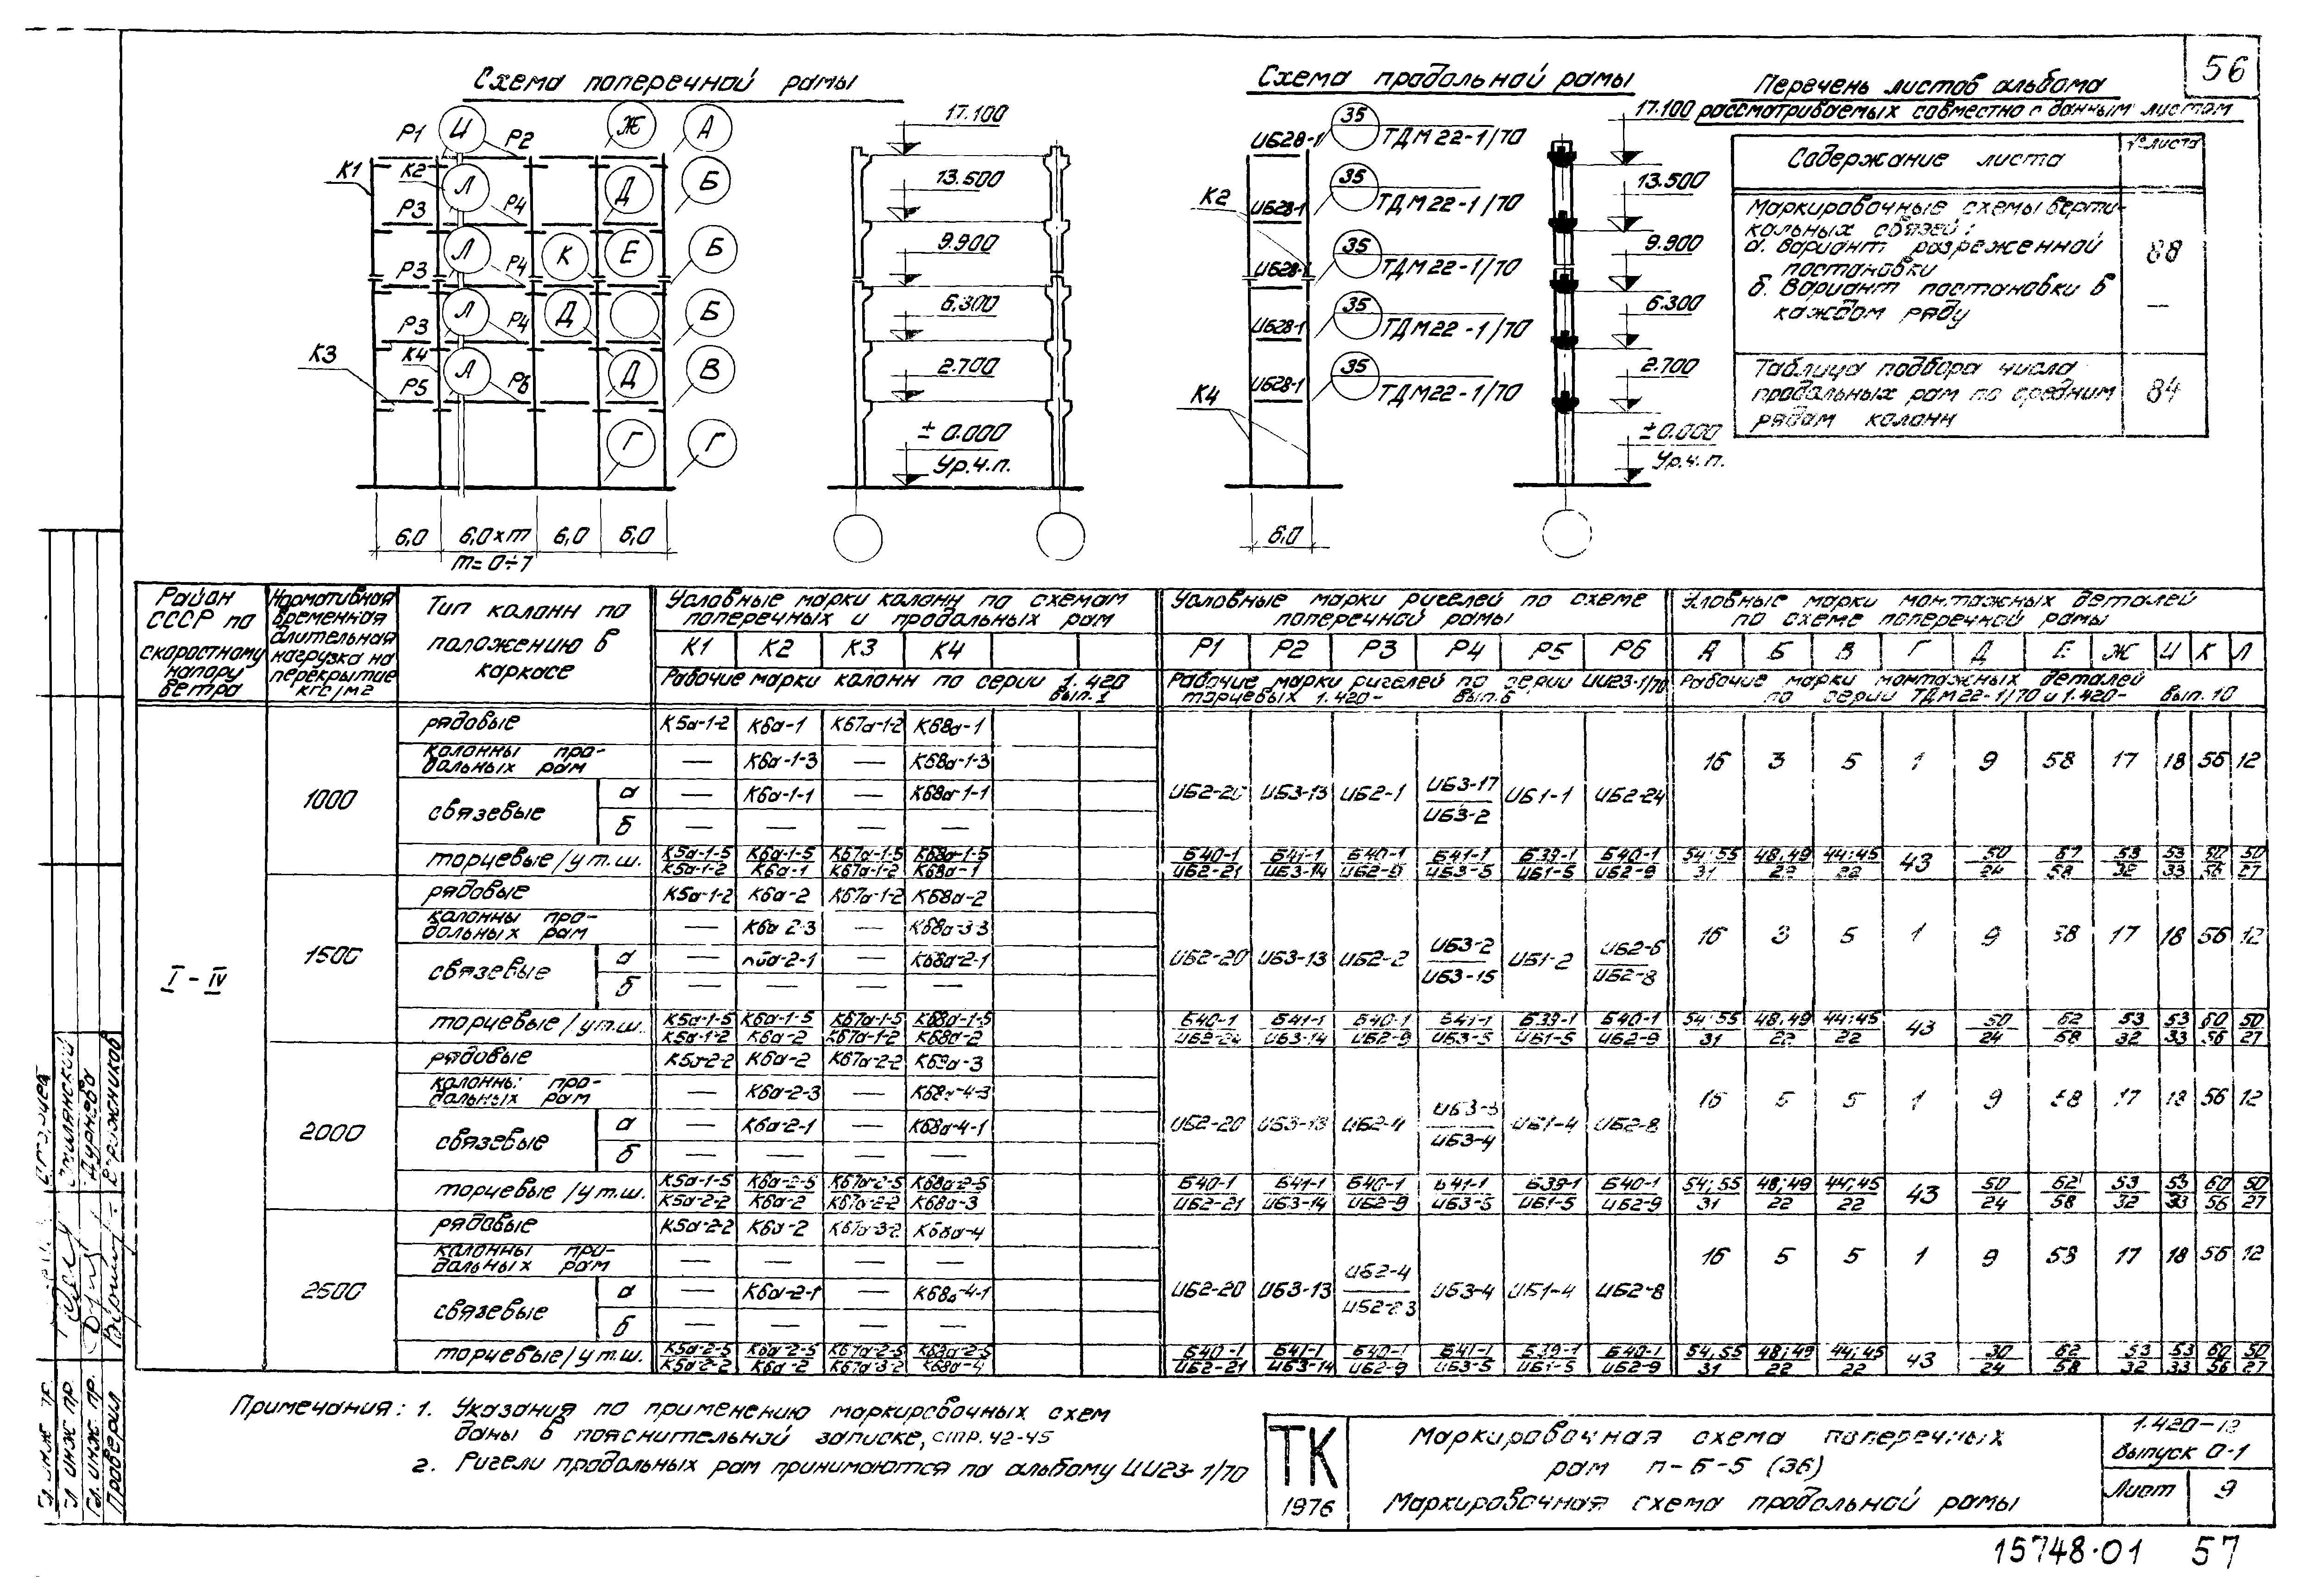 56
Схема поперечной рамы
Схема продольной рамы
Перечень листов альбома
рассматриваемых совместно с данным листом
Р1 И Р2 Ж А
К1 К2 Л Д Б
Р3 Р4
Л К Е Б
Р3 Р4
Л Д Б
Р3 Р4
К3 К4 Л Д В
Р5 Р6
Г Г
6,0 6,0×m 6,0 6,0
m=0÷7
17.100
13.500
9.900
6.300
2.700
± 0.000
Ур.ч.п.
ИБ28-1 35 ТДМ22-1/70
К2 ИБ28-1 35 ТДМ22-1/70
ИБ28-1 35 ТДМ22-1/70
ИБ28-1 35 ТДМ22-1/70
К4 ИБ28-1 35 ТДМ22-1/70
6,0
17.100
13.500
9.900
6.300
2.700
±0.000
Ур.ч.п.
Содержание листа № листа
Маркировочные схемы верти-
кальных связей:
а. Вариант разреженной
постановки 88
б. Вариант постановки в
каждом ряду —
Таблица подбора числа
продольных рам по средним 84
рядам колонн
Район СССР по скоростному напору ветра
Нормативная временная длительная нагрузка на перекрытие кгс/м2
Тип колонн по положению в каркасе
Условные марки колонн по схемам поперечных и продольных рам
К1 К2 К3 К4
Рабочие марки колонн по серии 1.420 вып.1
Условные марки ригелей по схеме поперечной рамы
Р1 Р2 Р3 Р4 Р5 Р6
Рабочие марки ригелей по серии ИИ23-1/70
торцевых 1.420- вып.6
Условные марки монтажных деталей по схеме поперечной рамы
А Б В Г Д Е Ж И К Л
Рабочие марки монтажных деталей
по серии ТДМ22-1/70 и 1.420- вып.10
I - IV
1000
рядовые К5а-1-2 К6а-1 К67а-1-2 К68а-1
колонны про-
дольных рам — К6а-1-3 — К68а-1-3
связевые а — К6а-1-1 — К68а-1-1
б — — — —
ИБ2-20 ИБ3-13 ИБ2-1 ИБ3-17/ИБ3-2 ИБ1-1 ИБ2-24
16 3 5 1 9 58 17 18 56 12
торцевые/у т.ш. К5а-1-5/К5а-1-2 К6а-1-5/К6а-1 К67а-1-5/К67а-1-2 К68а-1-5/К68а-1
Б40-1/ИБ2-21 Б41-1/ИБ3-14 Б40-1/ИБ2-9 Б41-1/ИБ3-5 Б39-1/ИБ1-5 Б40-1/ИБ2-9
54;55/31 48;49/22 44;45/22 43 50/24 62/58 53/32 53/33 60/56 50/27
1500
рядовые К5а-1-2 К6а-2 К67а-1-2 К68а-2
колонны про-
дольных рам — К6а-2-3 — К68а-3-3
связевые а — К6а-2-1 — К68а-2-1
б — — — —
ИБ2-20 ИБ3-13 ИБ2-2 ИБ3-2/ИБ3-15 ИБ1-2 ИБ2-6/ИБ2-8
16 3 5 1 9 58 17 18 56 12
торцевые/у т.ш. К5а-1-5/К5а-1-2 К6а-1-5/К6а-2 К67а-1-5/К67а-1-2 К68а-1-5/К68а-2
Б40-1/ИБ2-21 Б41-1/ИБ3-14 Б40-1/ИБ2-9 Б41-1/ИБ3-5 Б39-1/ИБ1-5 Б40-1/ИБ2-9
54;55/31 48;49/22 44;45/22 43 50/24 62/58 53/32 53/33 60/56 50/27
2000
рядовые К5а-2-2 К6а-2 К67а-2-2 К68а-3
колонны про-
дольных рам — К6а-2-3 — К68а-4-3
связевые а — К6а-2-1 — К68а-4-1
б — — — —
ИБ2-20 ИБ3-13 ИБ2-4 ИБ3-3/ИБ3-4 ИБ1-4 ИБ2-8
16 5 5 1 9 58 17 18 56 12
торцевые/у т.ш. К5а-1-5/К5а-2-2 К6а-2-5/К6а-2 К67а-2-5/К67а-2-2 К68а-2-5/К68а-3
Б40-1/ИБ2-21 Б41-1/ИБ3-14 Б40-1/ИБ2-9 Б41-1/ИБ3-5 Б39-1/ИБ1-5 Б40-1/ИБ2-9
54;55/31 48;49/22 44;45/22 43 50/24 62/58 53/32 53/33 60/56 50/27
2500
рядовые К5а-2-2 К6а-2 К67а-3-2 К68а-4
колонны про-
дольных рам — — — —
связевые а — К6а-2-1 — К68а-4-1
б — — — —
ИБ2-20 ИБ3-13 ИБ2-4/ИБ2-23 ИБ3-4 ИБ1-4 ИБ2-8
16 5 5 1 9 58 17 18 56 12
торцевые/у т.ш. К5а-2-5/К5а-2-2 К6а-2-5/К6а-2 К67а-2-5/К67а-3-2 К68а-2-5/К68а-4
Б40-1/ИБ2-21 Б41-1/ИБ3-14 Б40-1/ИБ2-9 Б41-1/ИБ3-5 Б39-1/ИБ1-5 Б40-1/ИБ2-9
54;55/31 48;49/22 44;45/22 43 30/24 62/58 53/32 53/33 60/56 50/27
Примечания: 1. Указания по применению маркировочных схем
даны в пояснительной записке, стр. 42-45
2. Ригели продольных рам принимаются по альбому ИИ23-1/70
ТК
1976
Маркировочная схема поперечных
рам п-6-5 (36)
Маркировочная схема продольной рамы
Выпуск 0-1
Лист 9
Гл. инж. пр.
Проверил
15748-01 57